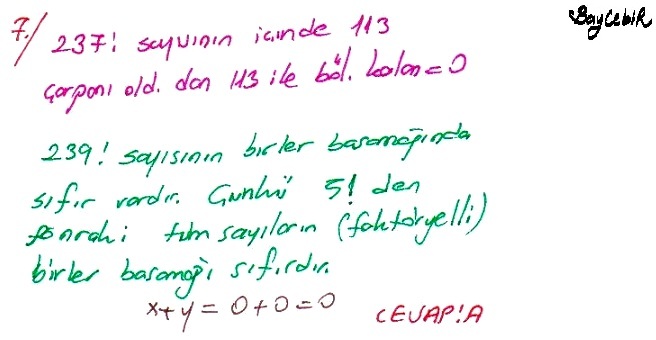 BayCebiR
7./ 237! sayısının içinde 113
çarpanı old. dan 113 ile böl. kalan = 0
239! sayısının birler basamağında
sıfır vardır. Çünkü 5! den
sonraki tüm sayıların (faktöryelli)
birler basamağı sıfırdır.
x+y = 0+0=0 CEVAP!A